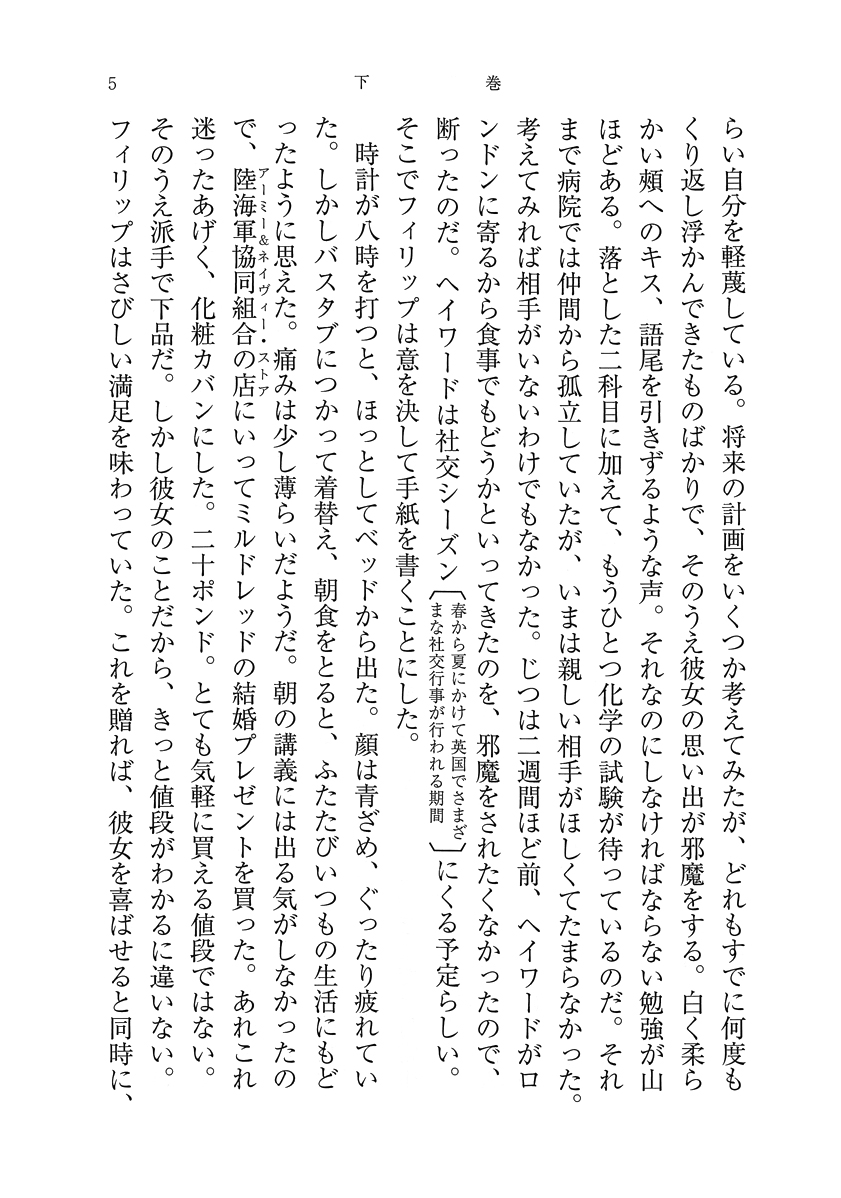 5
下　巻
らい自分を軽蔑している。将来の計画をいくつか考えてみたが、どれもすでに何度も
くり返し浮かんできたものばかりで、そのうえ彼女の思い出が邪魔をする。白く柔ら
かい頰へのキス、語尾を引きずるような声。それなのにしなければならない勉強が山
ほどある。落とした二科目に加えて、もうひとつ化学の試験が待っているのだ。それ
まで病院では仲間から孤立していたが、いまは親しい相手がほしくてたまらなかった。
考えてみれば相手がいないわけでもなかった。じつは二週間ほど前、ヘイワードがロ
ンドンに寄るから食事でもどうかといってきたのを、邪魔をされたくなかったので、
断ったのだ。ヘイワードは社交シーズン〔春から夏にかけて英国でさまざまな社交行事が行われる期間〕にくる予定らしい。
そこでフィリップは意を決して手紙を書くことにした。
時計が八時を打つと、ほっとしてベッドから出た。顔は青ざめ、ぐったり疲れてい
た。しかしバスタブにつかって着替え、朝食をとると、ふたたびいつもの生活にもど
ったように思えた。痛みは少し薄らいだようだ。朝の講義には出る気がしなかったの
で、陸海軍協同組合の店にいってミルドレッドの結婚プレゼントを買った。あれこれ
アーミー＆ネイヴィー・ストア
迷ったあげく、化粧カバンにした。二十ポンド。とても気軽に買える値段ではない。
そのうえ派手で下品だ。しかし彼女のことだから、きっと値段がわかるに違いない。
フィリップはさびしい満足を味わっていた。これを贈れば、彼女を喜ばせると同時に、